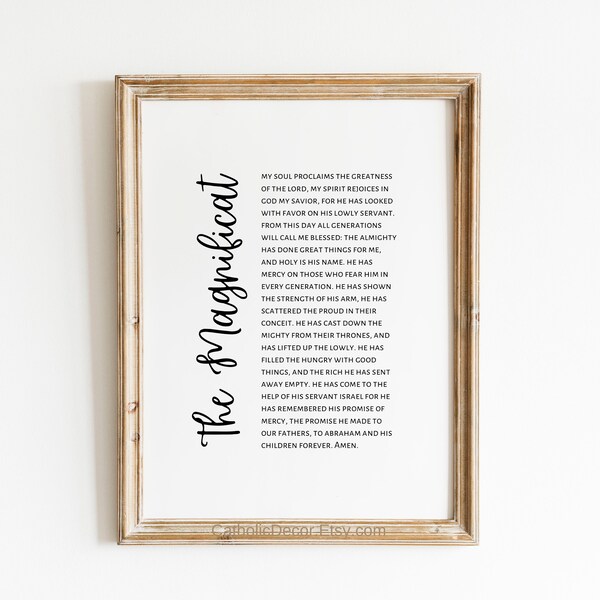 The Magnificat
MY SOUL PROCLAIMS THE GREATNESS
OF THE LORD, MY SPIRIT REJOICES IN
GOD MY SAVIOR, FOR HE HAS LOOKED
WITH FAVOR ON HIS LOWLY SERVANT.
FROM THIS DAY ALL GENERATIONS
WILL CALL ME BLESSED: THE ALMIGHTY
HAS DONE GREAT THINGS FOR ME,
AND HOLY IS HIS NAME. HE HAS
MERCY ON THOSE WHO FEAR HIM IN
EVERY GENERATION. HE HAS SHOWN
THE STRENGTH OF HIS ARM, HE HAS
SCATTERED THE PROUD IN THEIR
CONCEIT. HE HAS CAST DOWN THE
MIGHTY FROM THEIR THRONES, AND
HAS LIFTED UP THE LOWLY. HE HAS
FILLED THE HUNGRY WITH GOOD
THINGS, AND THE RICH HE HAS SENT
AWAY EMPTY. HE HAS COME TO THE
HELP OF HIS SERVANT ISRAEL FOR HE
HAS REMEMBERED HIS PROMISE OF
MERCY, THE PROMISE HE MADE TO
OUR FATHERS, TO ABRAHAM AND HIS
CHILDREN FOREVER. AMEN.
CatholicDecor.Etsy.com